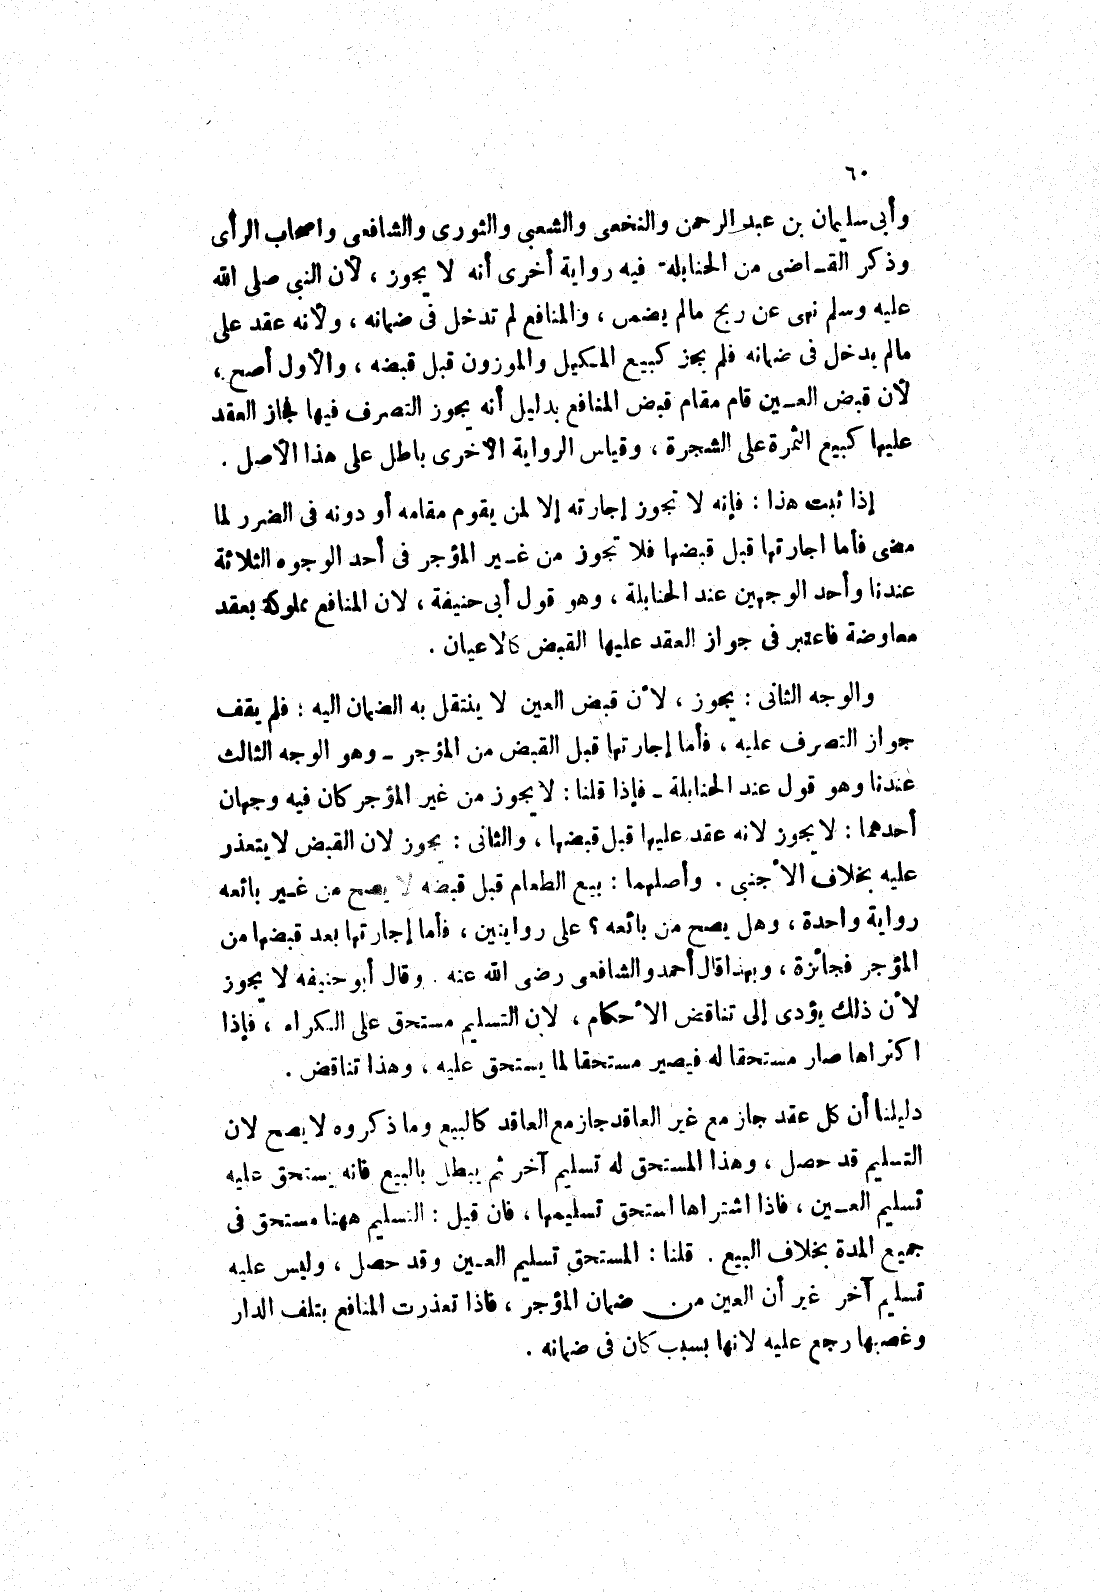 ٦٠
وأبى سليمان بن عبد الرحمن والنخعى والشعبى والثورى والشافعى واصحاب الرأى
وذكر القاضى من الحنابلة فيه رواية أخرى أنه لا يجوز ، لأن النبى صلى الله
عليه وسلم نهى عن ربح مالم يضمن ، والمنافع لم تدخل فى ضمانه ، ولأنه عقد على
مالم يدخل فى ضمانه فلم يجز كبيع المكيل والموزون قبل قبضه ، والأول أصح ،
لأن قبض العين قام مقام قبض المنافع بدليل أنه يجوز التصرف فيها فجاز العقد
عليها كبيع الثمرة على الشجرة ، وقياس الرواية الأخرى باطل على هذا الأصل .
إذا ثبت هذا : فإنه لا تجوز إجارته إلا لمن يقوم مقامه أو دونه فى الضرر لما
مضى فأما اجارتها قبل قبضها فلا تجوز من غير المؤجر فى أحد الوجوه الثلاثة
عندنا وأحد الوجهين عند الحنابلة ، وهو قول أبى حنيفة ، لان المنافع مملوكة بعقد
معاوضة فاعتبر فى جواز العقد عليها القبض كالاعيان .
والوجه الثانى : يجوز ، لأن قبض العين لا ينتقل به الضمان اليه : فلم يقف
جواز التصرف عليه ، فأما إجارتها قبل القبض من المؤجر ـ وهو الوجه الثالث
عندنا وهو قول عند الحنابلة ـ فإذا قلنا : لا يجوز من غير المؤجر كان فيه وجهان
أحدهما : لا يجوز لانه عقد عليها قبل قبضها ، والثانى : يجوز لان القبض لا يتعذر
عليه بخلاف الأجنبى . وأصلهما : بيع الطعام قبل قبضه لا يصح من غير بائعه
رواية واحدة ، وهل يصح من بائعه ؟ على روايتين ، فأما إجارتها بعد قبضها من
المؤجر فجائزة ، وبهذا قال أحمد والشافعى رضى الله عنه . وقال أبو حنيفه لا يجوز
لأن ذلك يؤدى إلى تناقض الأحكام ، لان التسليم مستحق على الكراء ، فإذا
اكتراها صار مستحقا له فيصير مستحقا لما يستحق عليه ، وهذا تناقض .
دليلنا أن كل عقد جاز مع غير العاقد جاز مع العاقد كالبيع وما ذكروه لا يصح لان
التسليم قد حصل ، وهذا المستحق له تسليم آخر ثم يبطل بالبيع فانه يستحق عليه
تسليم العين ، فاذا اشتراها استحق تسليمها ، فان قيل : التسليم ههنا مستحق فى
جميع المدة بخلاف البيع . قلنا : المستحق تسليم العين وقد حصل ، وليس عليه
تسليم آخر غير أن العين من ضمان المؤجر ، فاذا تعذرت المنافع بتلف الدار
وغصبها رجع عليه لانها بسبب كان فى ضمانه .